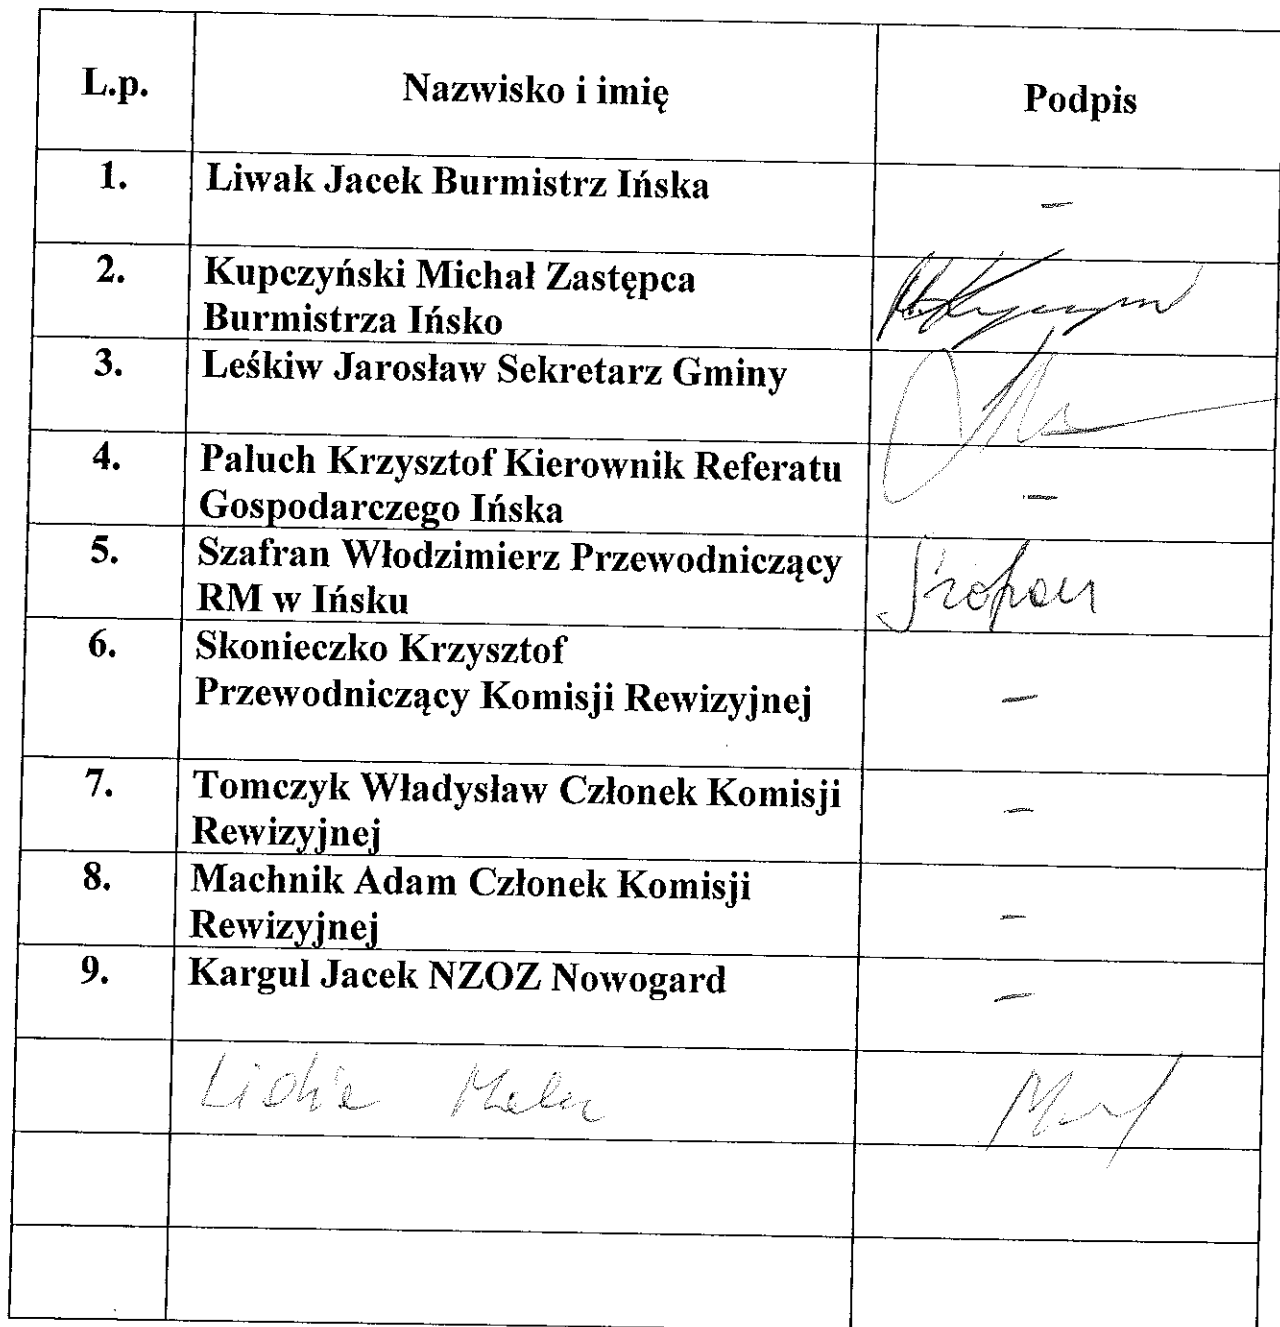 L.p. Nazwisko i imię Podpis
1. Liwak Jacek Burmistrz Ińska -
2. Kupczyński Michał Zastępca
Burmistrza Ińsko
3. Leśkiw Jarosław Sekretarz Gminy
4. Paluch Krzysztof Kierownik Referatu
Gospodarczego Ińska -
5. Szafran Włodzimierz Przewodniczący
RM w Ińsku
6. Skonieczko Krzysztof
Przewodniczący Komisji Rewizyjnej -
7. Tomczyk Władysław Członek Komisji
Rewizyjnej -
8. Machnik Adam Członek Komisji
Rewizyjnej -
9. Kargul Jacek NZOZ Nowogard -